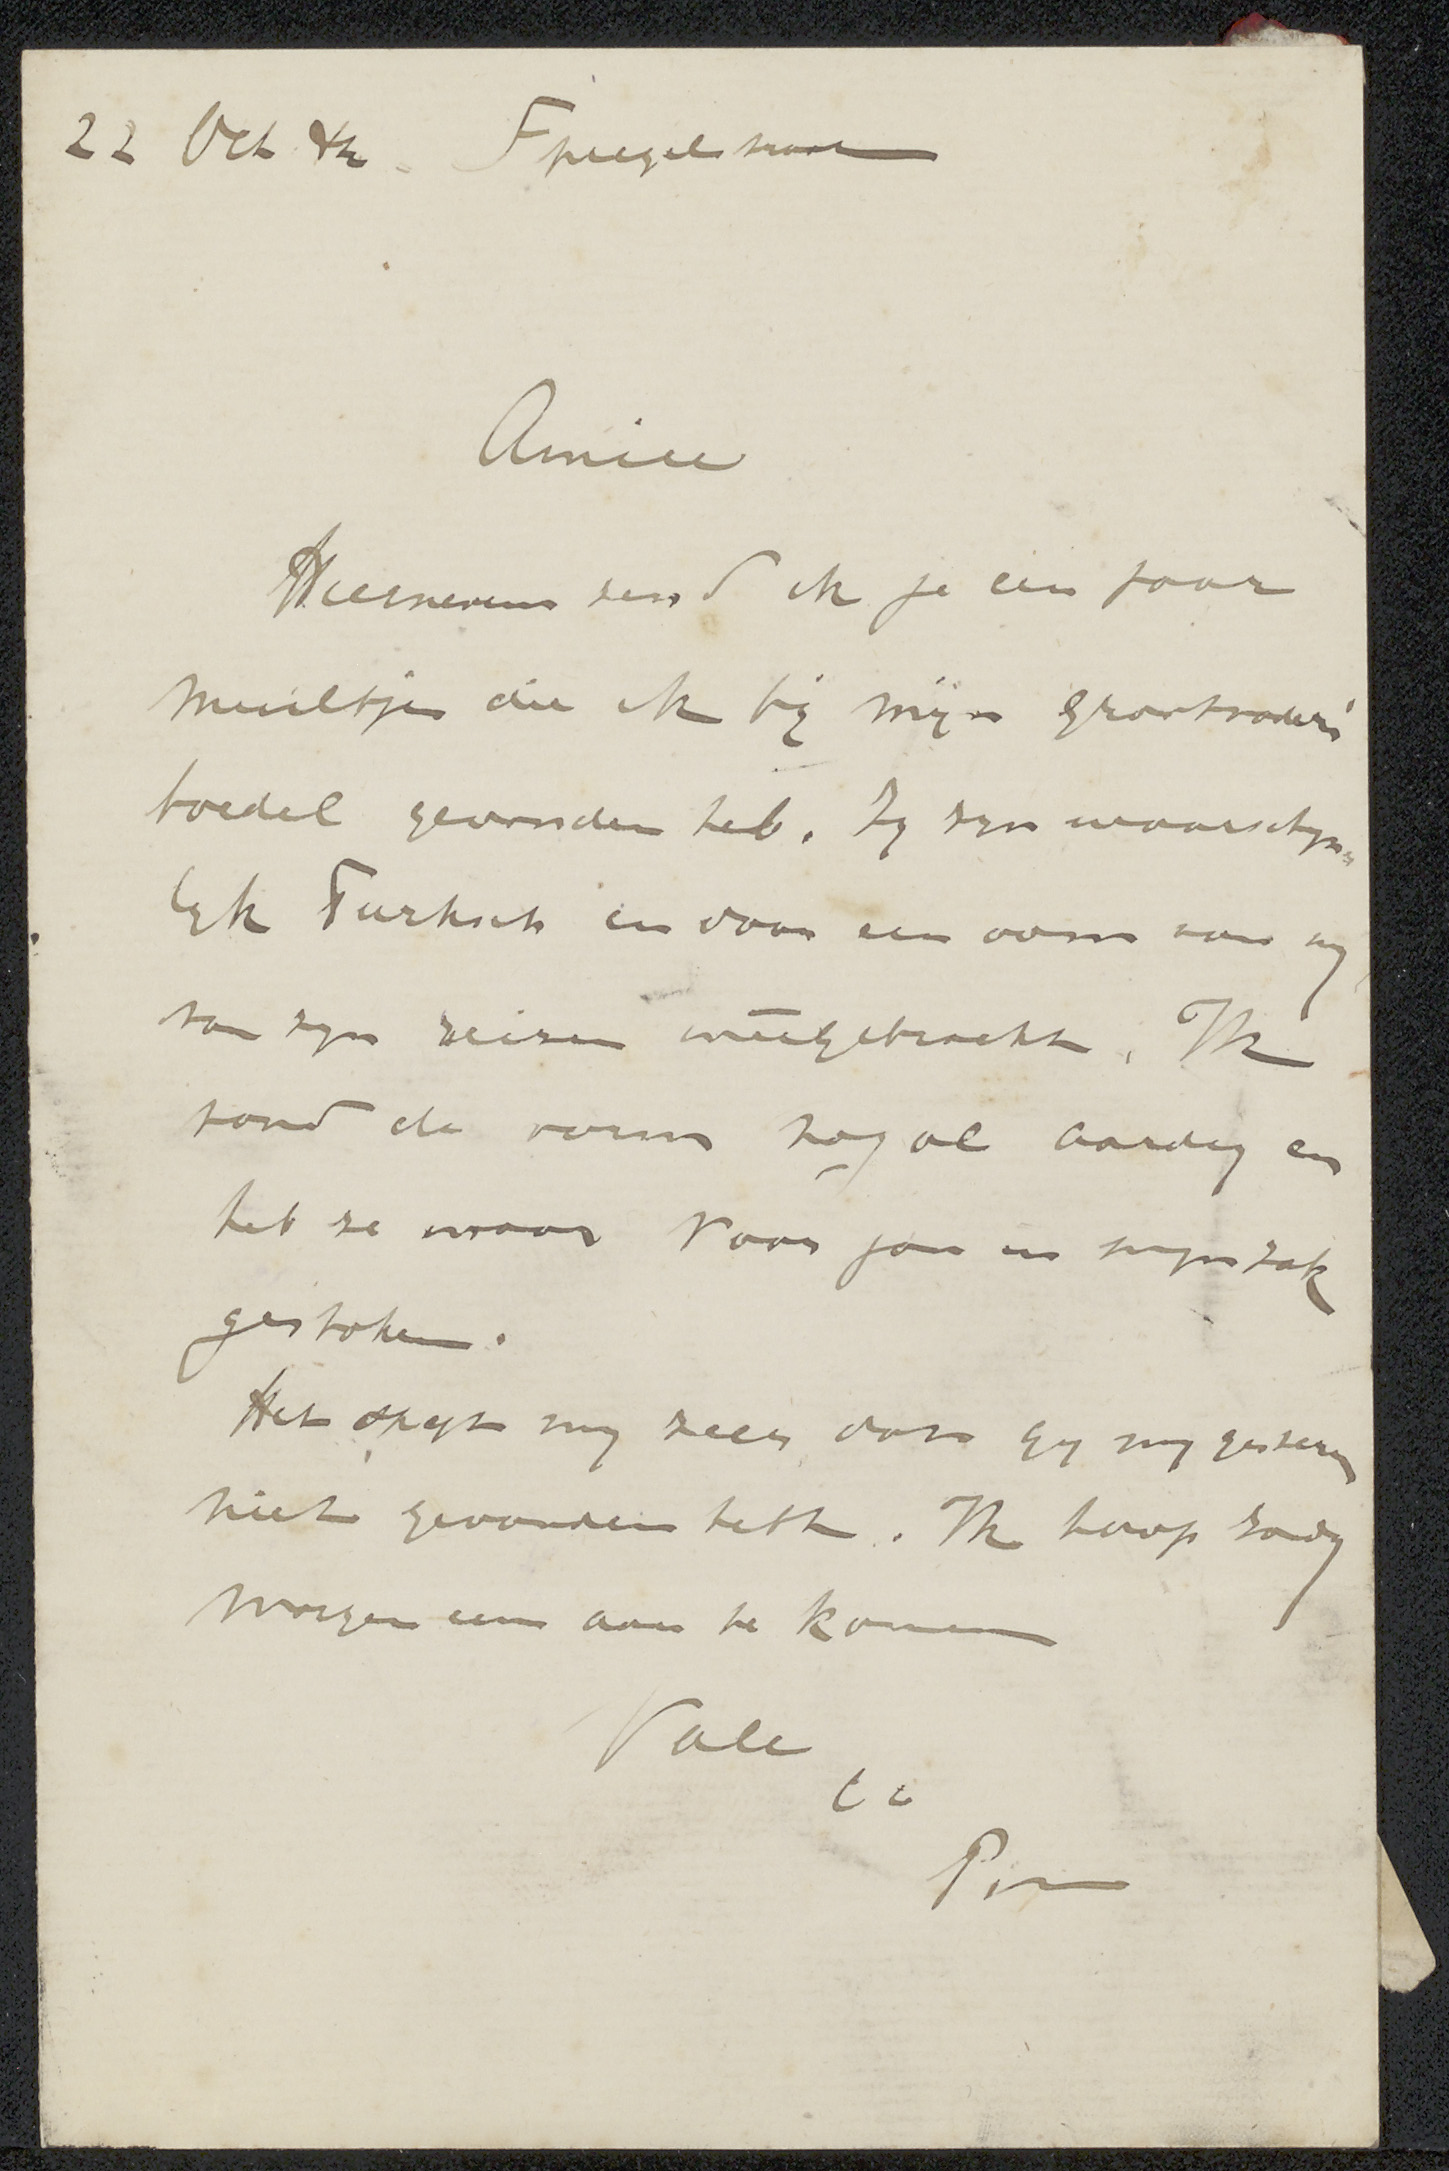 22 Oct Spiegelstraat
Amice
Hiernevens zend ik je een paar
muiltjes die ik bij mijn grootvaders
boedel gevonden heb. Zy zyn waarschyn=
lyk Turksch en door een oom van my
van zyn reizen meêgebracht. Ik
vond de vorm nog al aardig en
heb ze maar voor jou in myn zak
gestoken.
Het spyt my zeer dat gy my gisteren
niet gevonden hebt. Ik hoop
morgen eens aan te komen
Vale
tt
Pim